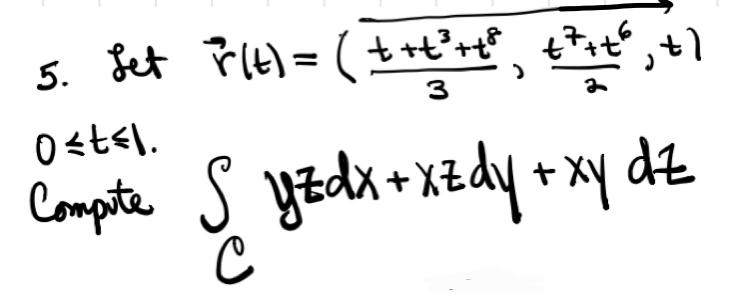 5. Let r⃗(t) = ( (t + t³ + t⁸)/3 , (t⁷ + t⁶)/2 , t )
0 ≤ t ≤ 1.
Compute ∫_C yz dx + xz dy + xy dz